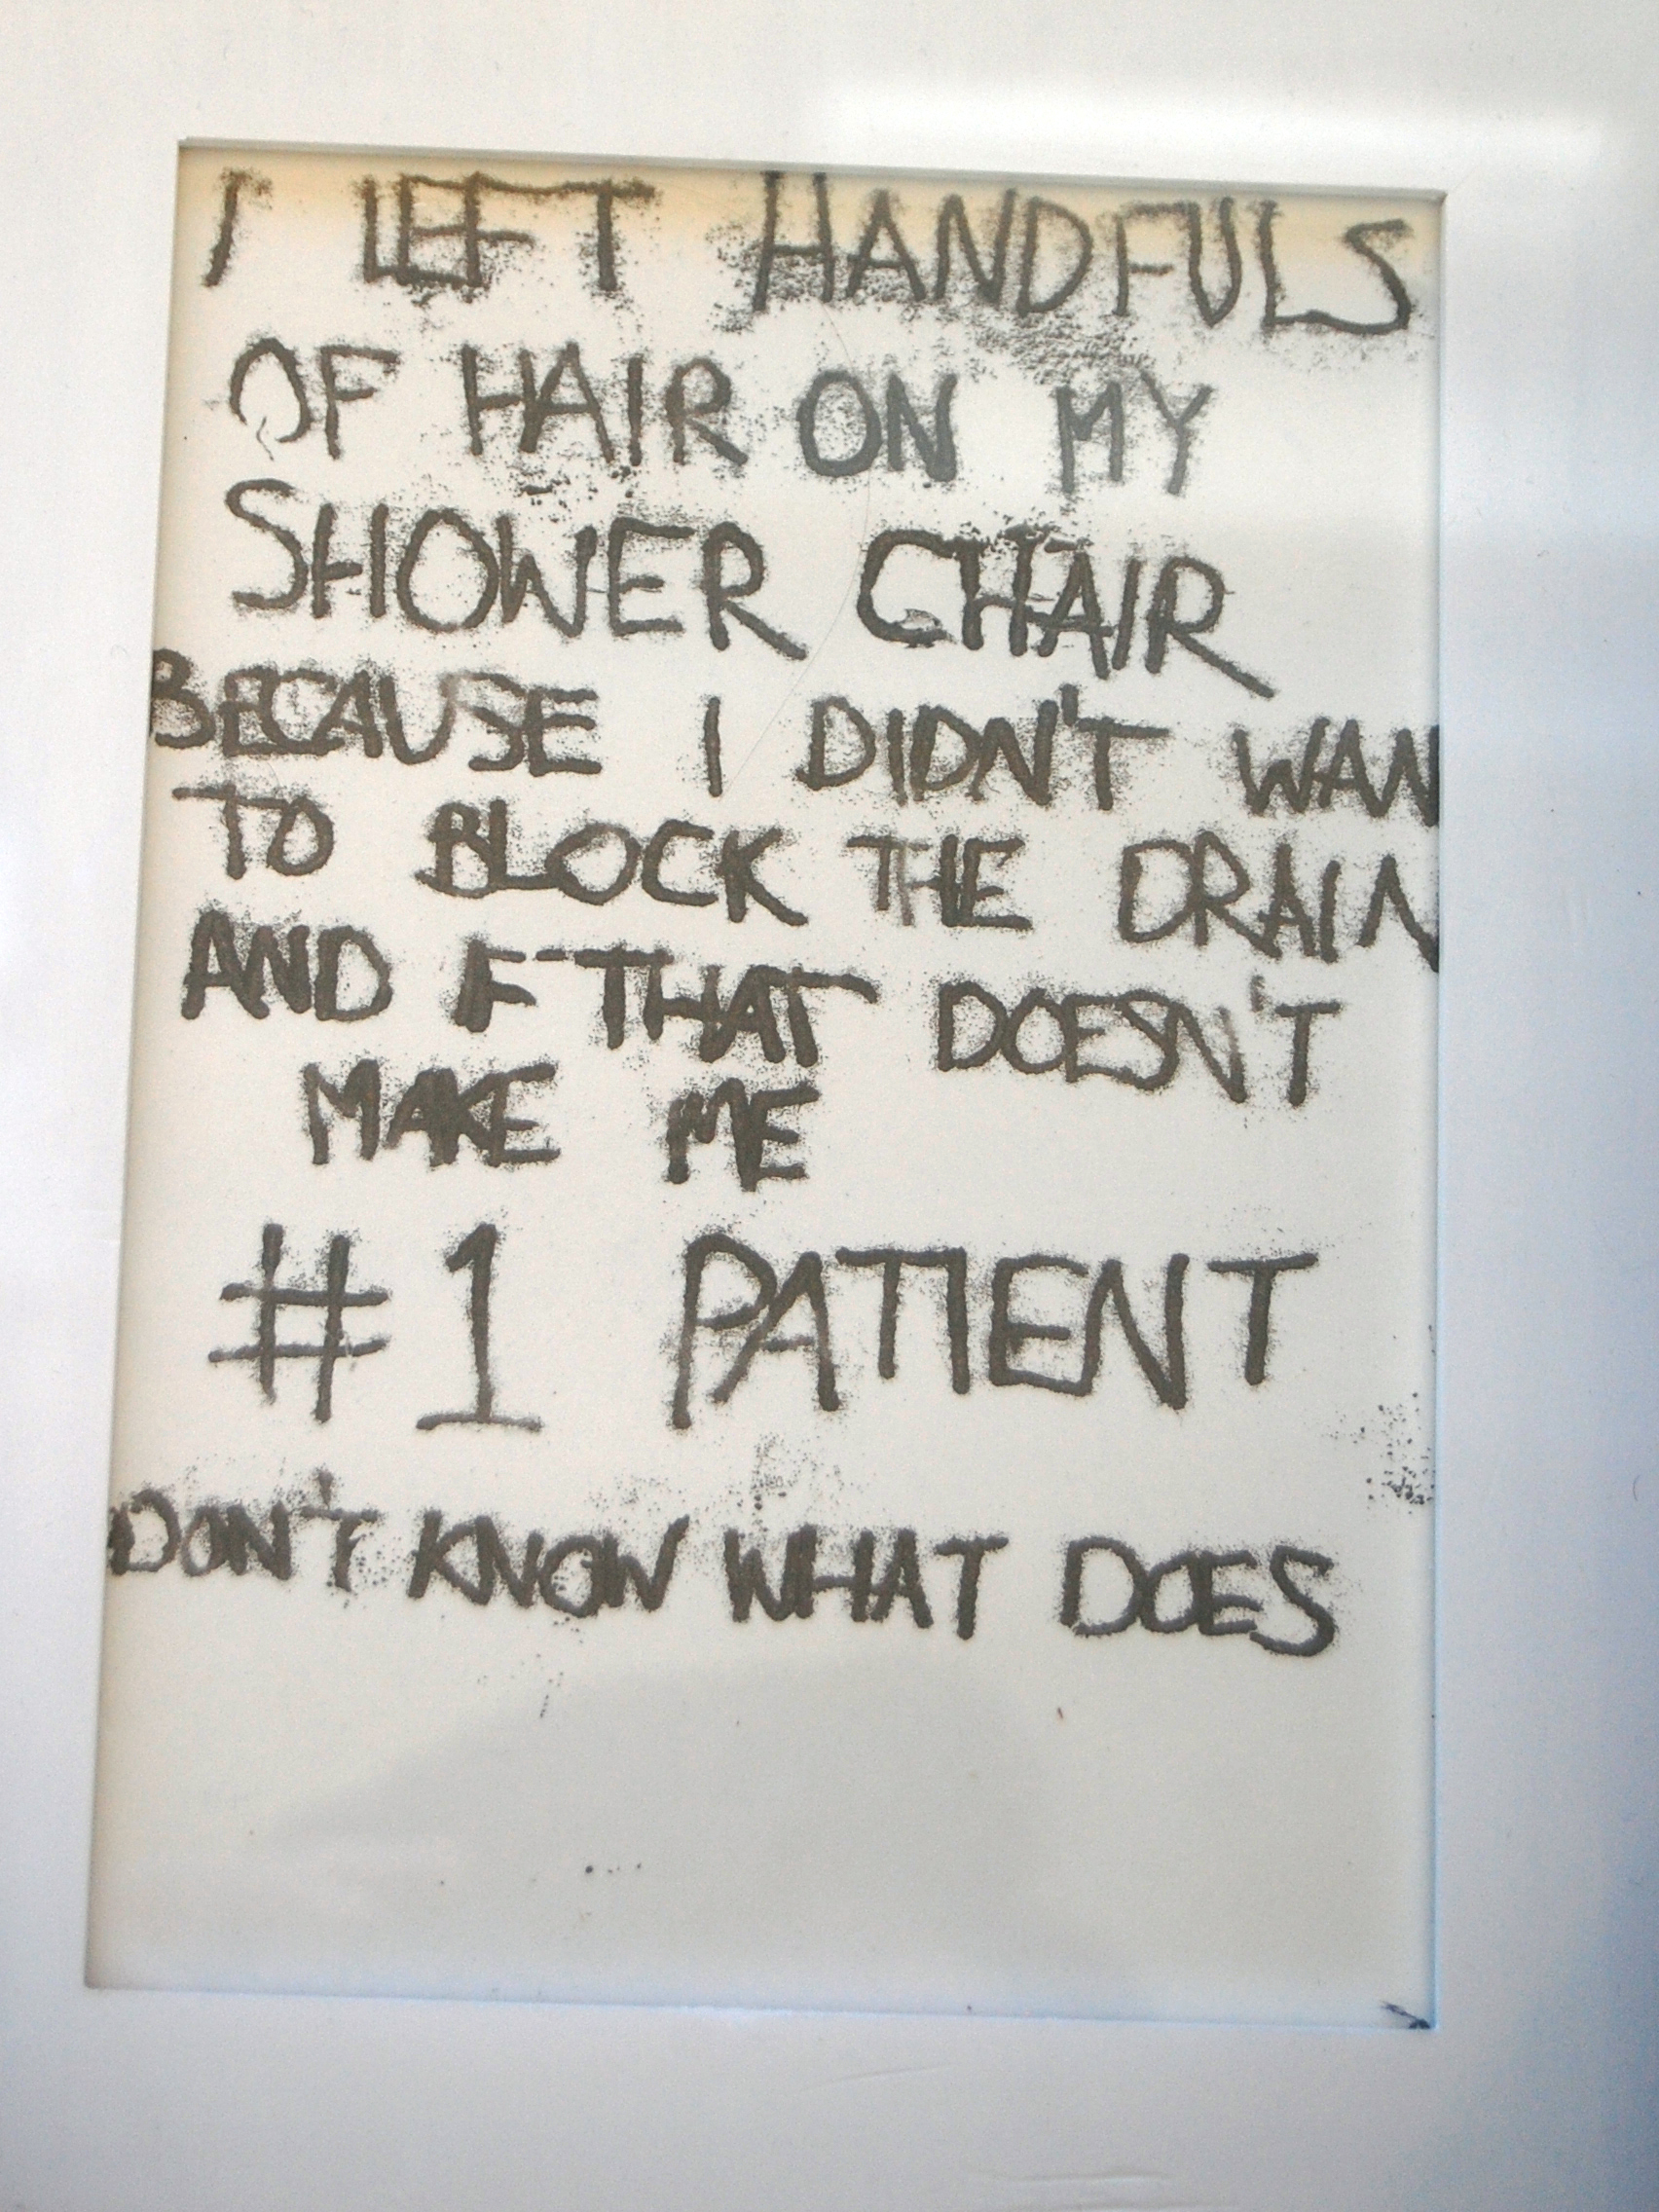 I LEFT HANDFULS
OF HAIR ON MY
SHOWER CHAIR
BECAUSE I DIDN'T WAN
TO BLOCK THE DRAIN
AND IF THAT DOESN'T
MAKE ME
#1 PATIENT
DON'T KNOW WHAT DOES